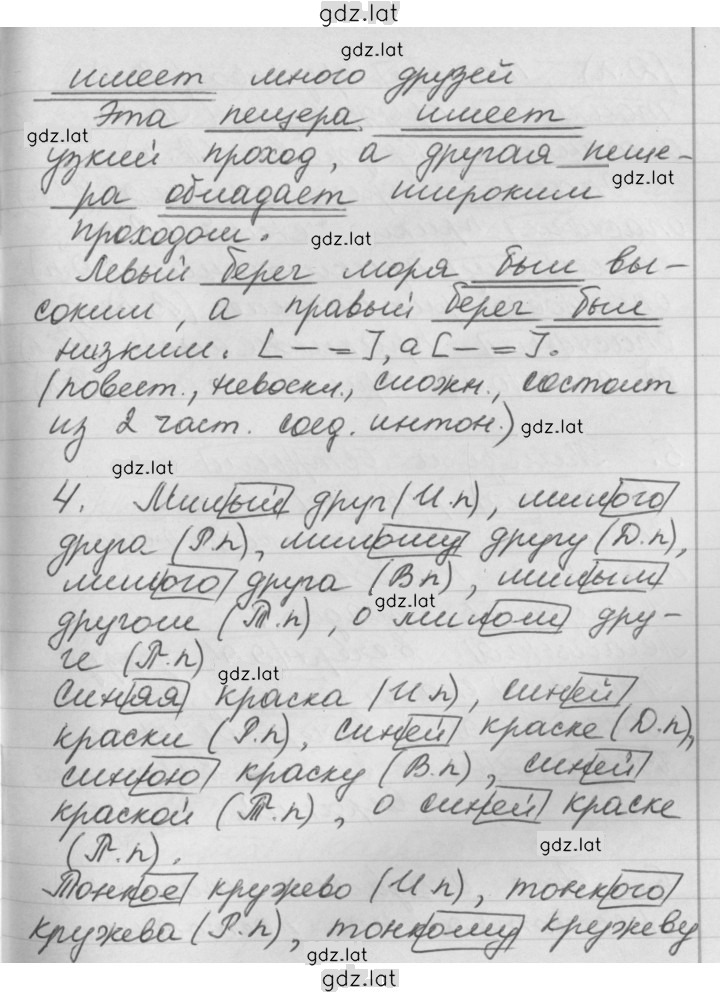 gdz.lat
gdz.lat
имеет много друзей
Эта пещера имеет
gdz.lat
узкий проход, а другая пеще-
gdz.lat
ра обладает широким
проходом.
gdz.lat
Левый берег моря был вы-
соким, а правый берег был
низким. [— =], а [— =].
(повест., невоскл., сложн., состоит
из 2 част. соед. интон.)
gdz.lat
gdz.lat
4. Милый друг (И.п), милого
друга (Р.п), милому другу (Д.п),
милого друга (В.п), милым
gdz.lat
другом (Т.п), о милом дру-
ге (П.п)
gdz.lat
Синяя краска (И.п), синей
краски (Р.п), синей краске (Д.п),
синюю краску (В.п), синей
краской (Т.п), о синей краске
gdz.lat
(П.п).
Тонкое кружево (И.п), тонкого
кружева (Р.п), тонкому кружеву
gdz.lat
gdz.lat